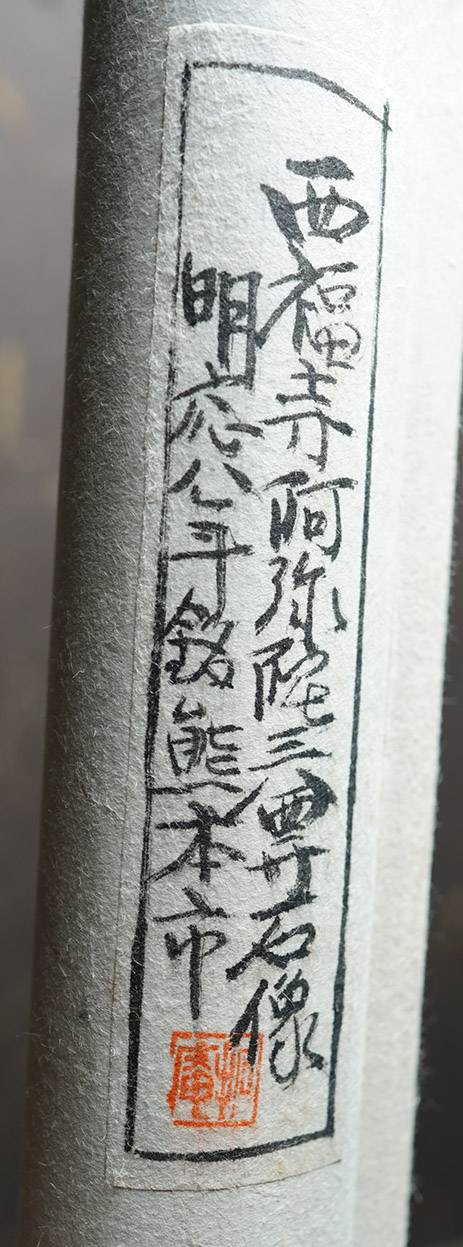 西福寺阿弥陀三尊石像
明応八年銘熊本市